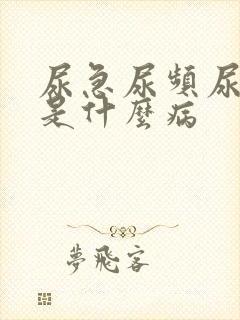 尿急尿頻尿
是什麼病
夢飛客